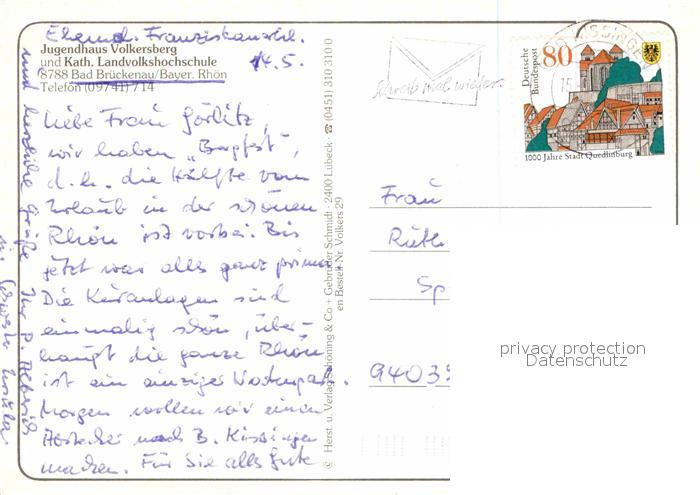 Ehemal. Franziskanerkl.
Jugendhaus Volkersberg
und Kath. Landvolkshochschule 14.5.
8788 Bad Brückenau/Bayer. Rhön
Telefon (09741) 714
Liebe Frau Görlitz,
wir haben „Bergfest",
d. h. die Hälfte vom
Urlaub in der schönen
Rhön ist vorbei. Bis
jetzt war alles ganz prima.
Die Kuranlagen sind
einmalig schön, über-
haupt die ganze Rhön
ist ein einziger Naturpark.
Morgen wollen wir einen
Abstecher nach B. Kissingen
machen. Für Sie alles Gute
und herzliche Grüße Ihr P.
Schwester Ursula.
© Herst. u. Verlag Schöning & Co + Gebrüder Schmidt · 2400 Lübeck · ☎ (0451) 310 310 0
en Bestell-Nr. Volkers 29
Schreib mal wieder.
KISSINGEN
15.
Deutsche
Bundespost
80
1000 Jahre Stadt Quedlinburg
Frau
Ruth
Sp
9403
privacy protection
Datenschutz